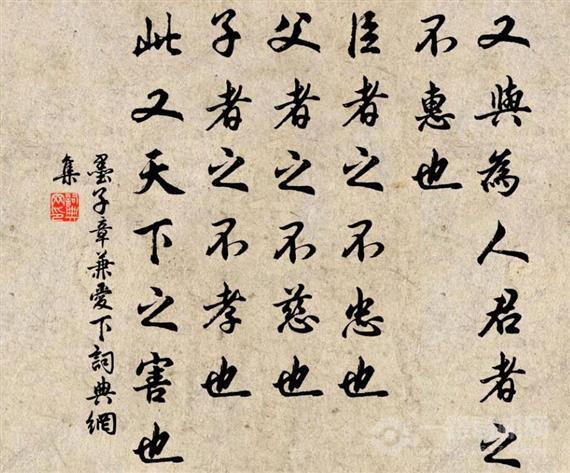 又與為人君者之
不惠也
臣者之不忠也
父者之不慈也
子者之不孝也
此又天下之害也
墨子章兼愛下詞典網
集